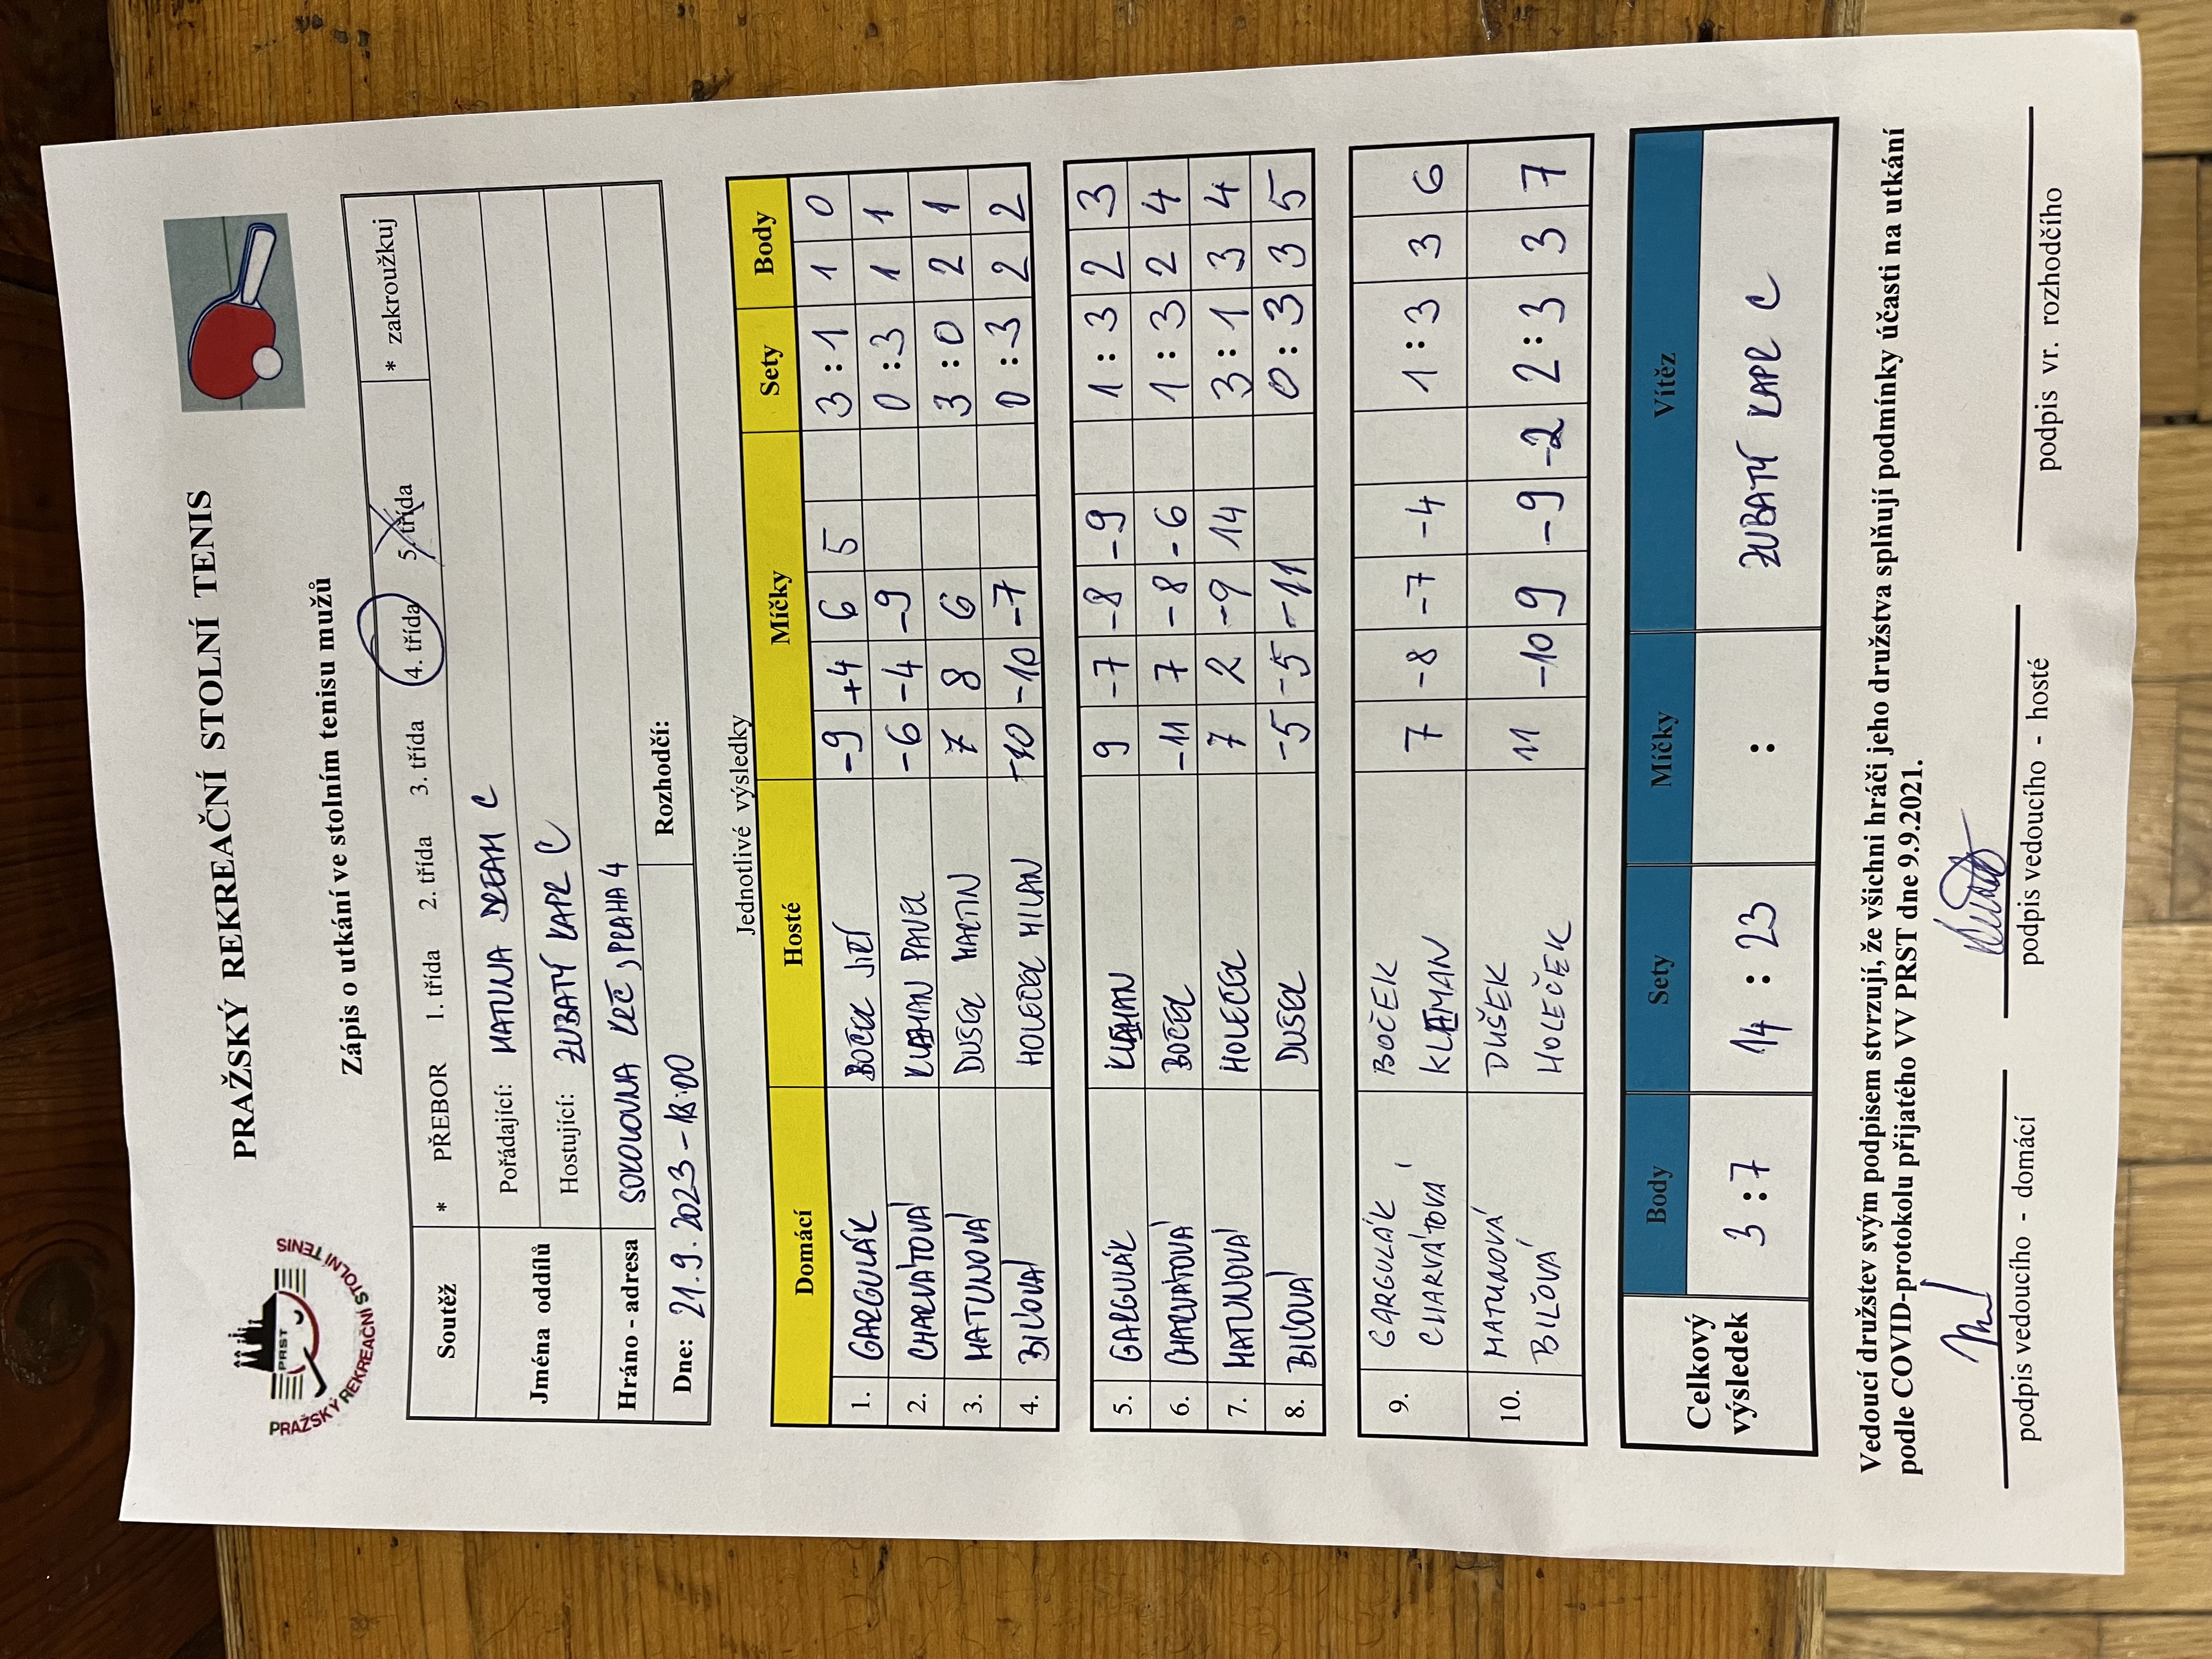 PRAŽSKÝ REKREAČNÍ STOLNÍ TENIS
PRST
PRAŽSKÝ REKREAČNÍ STOLNÍ TENIS
Zápis o utkání ve stolním tenisu mužů
Soutěž * PŘEBOR 1. třída 2. třída 3. třída 4. třída 5. třída * zakroužkuj
Jména oddílů Pořádající: MATUNA DREAM C
Hostující: ZUBATÝ KAPR C
Hráno - adresa SOKOLOVNA KRČ, PRAHA 4
Dne: 21.9.2023 - 18:00 Rozhodčí:
Jednotlivé výsledky
Domácí Hosté Míčky Sety Body
1. GARGULÁK BOČEK JIŘÍ -9 +4 6 5 3 : 1 1 0
2. CHARVÁTOVÁ KLAMAN PAVEL -6 -4 -9 0 : 3 1 1
3. MATUNOVÁ DUŠEK MARTIN 7 8 6 3 : 0 2 1
4. BILOVÁ HOLEČEK MILAN -10 -10 -7 0 : 3 2 2
5. GARGULÁK KLAMAN 9 -7 -8 -9 1 : 3 2 3
6. CHARVÁTOVÁ BOČEK -11 7 -8 -6 1 : 3 2 4
7. MATUNOVÁ HOLEČEK 7 2 -9 14 3 : 1 3 4
8. BILOVÁ DUŠEK -5 -5 -11 0 : 3 3 5
9. GARGULÁK BOČEK
CHARVÁTOVÁ KLAMAN 7 -8 -7 -4 1 : 3 3 6
10. MATUNOVÁ DUŠEK
BILOVÁ HOLEČEK 11 -10 9 -9 -2 2 : 3 3 7
Celkový výsledek Body Sety Míčky Vítěz
3 : 7 14 : 23 : ZUBATÝ KAPR C
Vedoucí družstev svým podpisem stvrzují, že všichni hráči jeho družstva splňují podmínky účasti na utkání
podle COVID-protokolu přijatého VV PRST dne 9.9.2021.
podpis vedoucího - domácí podpis vedoucího - hosté podpis vr. rozhodčího